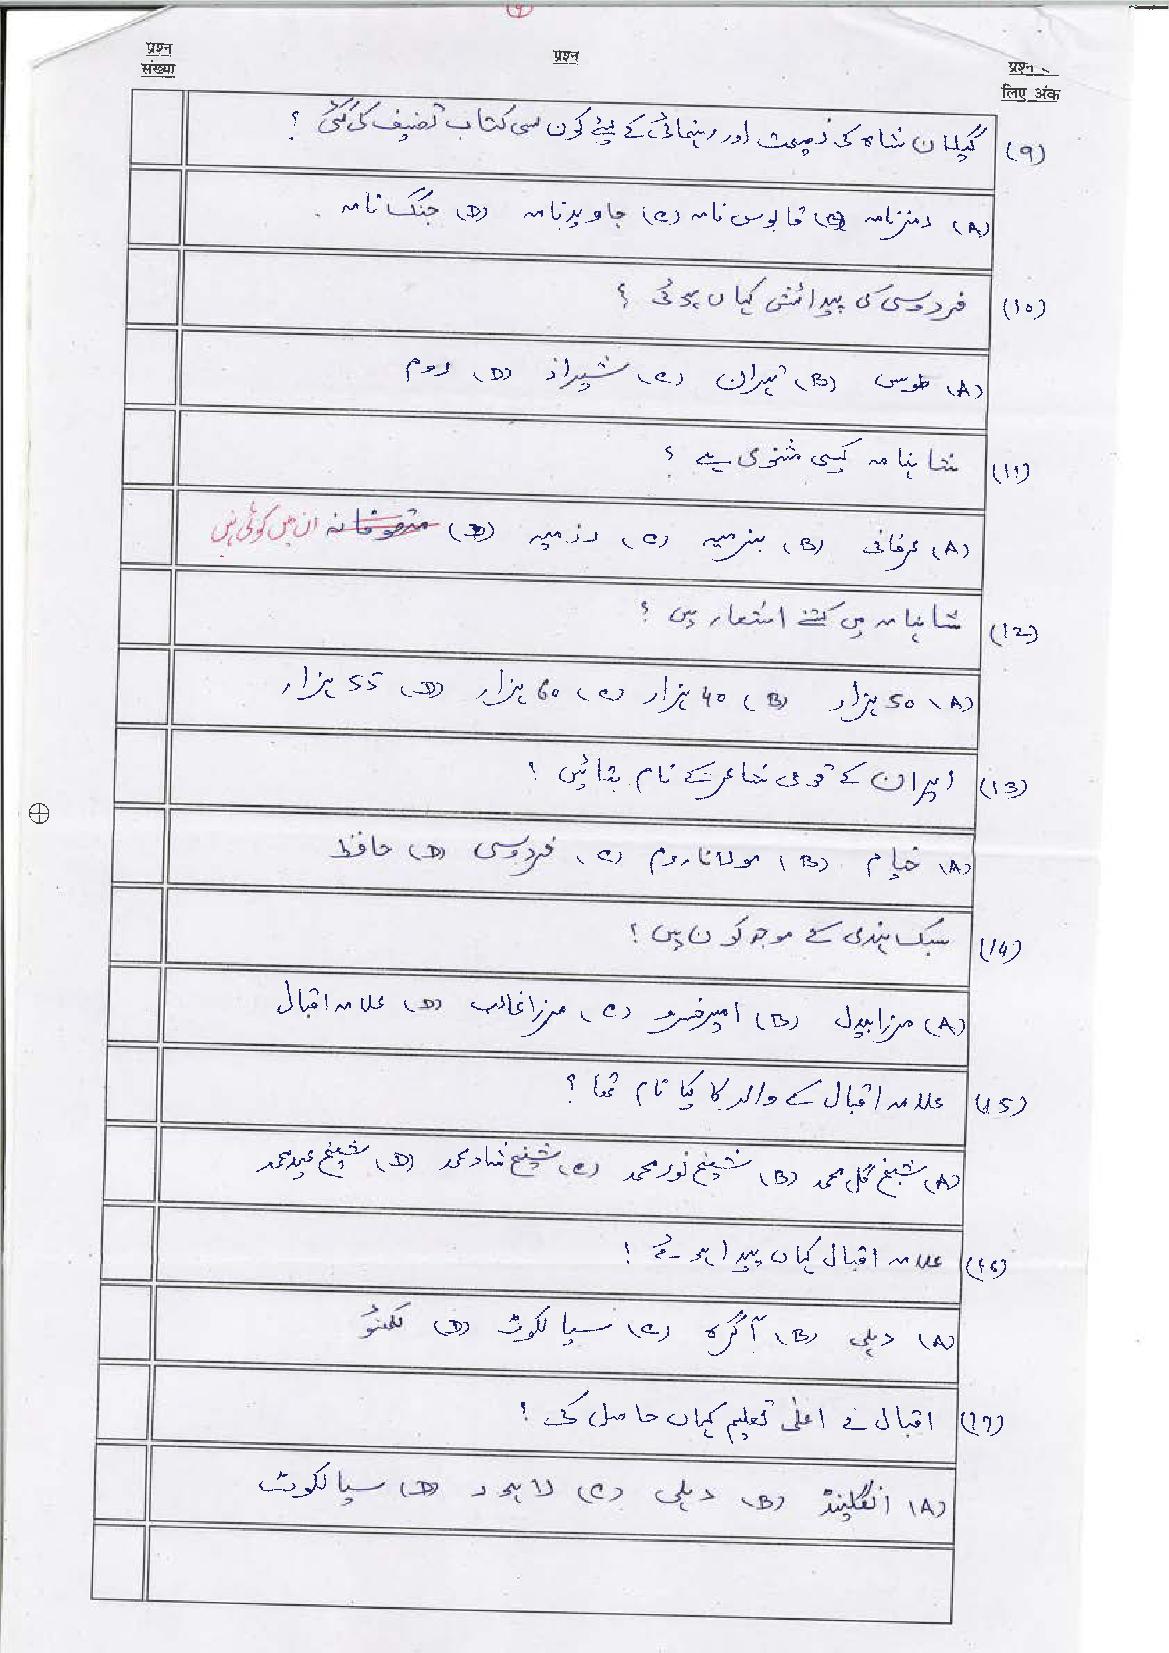 प्रश्न संख्या
प्रश्न
प्रश्न
लिए अंक
(9) گیلان شاہ کی نصیحت اور رہنمائی کے لیئے کون سی کتاب تصنیف کی گئی؟
(A) رمزنامہ (B) قابوس نامہ (C) جاویدنامہ (D) جنگ نامہ
(10) فردوسی کی پیدائش کہاں ہوئی؟
(A) طوس (B) تہران (C) شیراز (D) روم
(11) شاہنامہ کیسی مثنوی ہے؟
(A) عرفانی (B) بزمیہ (C) رزمیہ (D) متصوفانہ ان میں کوئی نہیں
(12) شاہنامہ میں کتنے اشعار ہیں؟
(A) 50 ہزار (B) 40 ہزار (C) 60 ہزار (D) 55 ہزار
(13) ایران کے قومی شاعر کے نام بتائیں؟
(A) خیام (B) مولانا روم (C) فردوسی (D) حافظ
(14) سبک ہندی کے موجد کون ہیں؟
(A) مرزا بیدل (B) امیر خسرو (C) مرزا غالب (D) علامہ اقبال
(15) علامہ اقبال کے والد کا کیا نام تھا؟
(A) شیخ گل محمد (B) شیخ نور محمد (C) شیخ شاد محمد (D) شیخ عید محمد
(16) علامہ اقبال کہاں پیدا ہوئے؟
(A) دہلی (B) آگرہ (C) سیالکوٹ (D) لکھنؤ
(17) اقبال نے اعلیٰ تعلیم کہاں حاصل کی؟
(A) انگلینڈ (B) دہلی (C) لاہور (D) سیالکوٹ